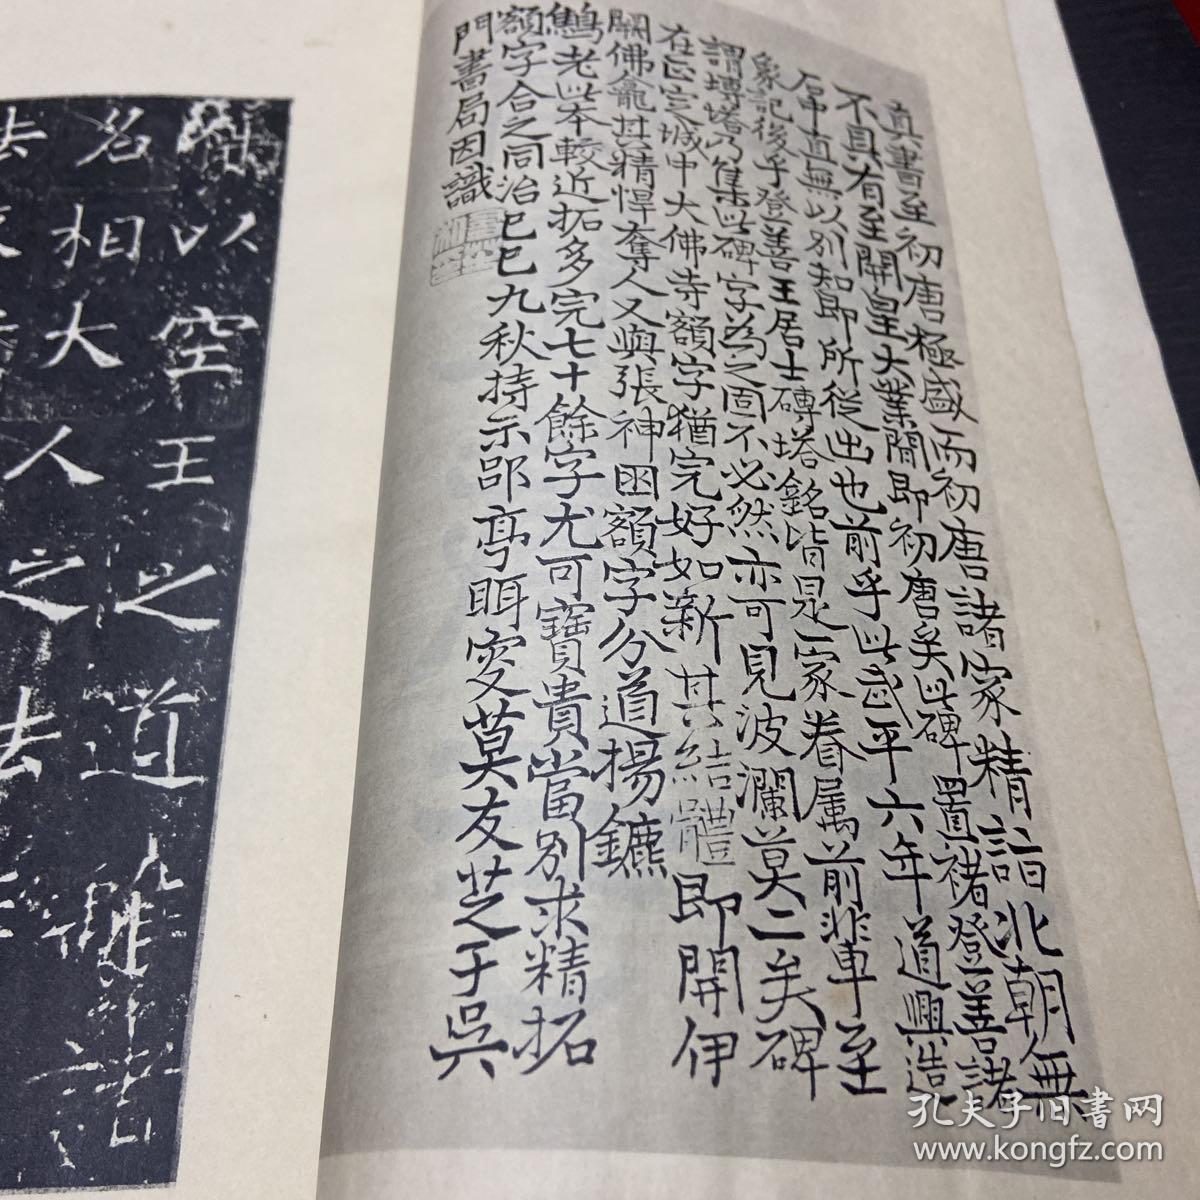 真書至初唐極盛而初唐諸家精詣北朝無
不具有至開皇大業間即初唐矣此碑置褚登善諸
石中直無以別知即所從出也前乎此武平六年道興造
象記後乎登善王居士磚塔銘皆是一家眷属前非車至
謂塼塔乃集此碑字為之固不必然亦可見波瀾莫二矣碑
在正定城中大佛寺額字猶完好如新其結體即開伊
闕佛龕其精悍奪人又與張神囧額字分道揚鑣
鷦老此本較近拓多完七十餘字尤可寶貴當別求精拓
額字合之同治己巳九秋持示郘亭眲叟莫友芝于吳
門書局因識
以空王之道
名相大
人之
法
孔夫子旧書网
www.kongfz.com